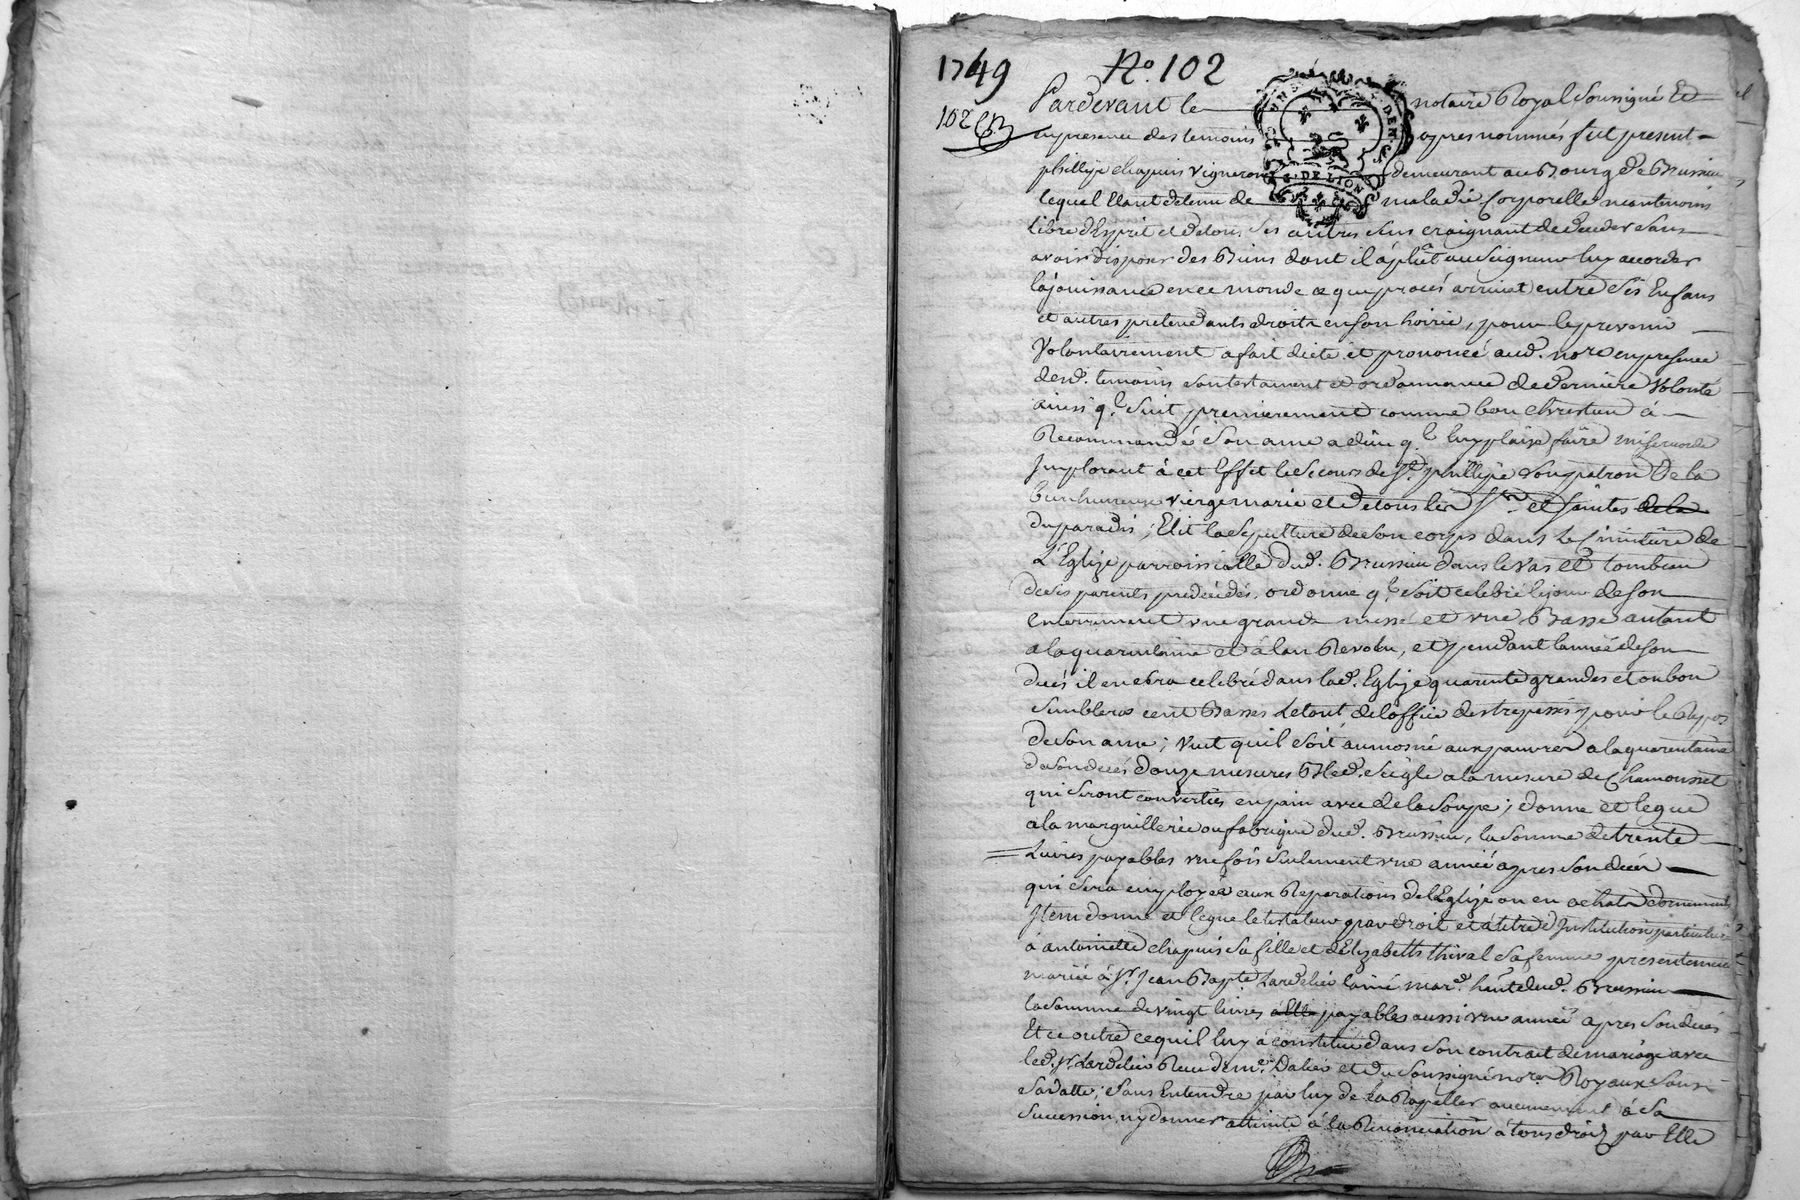 1749 No. 102
102
Pardevant le notaire Royal soussigné Et
en presence des temoins apres nommés fut present
phillipe chapuis vigneron demeurant au Bourg de Brussieu
lequel Etant detenu de maladie Corporelle neantmoins
libre d'Esprit et de tous ses autres sens craignant de deceder sans
avoir disposer des Biens dont il a plût au Seigneur luy accorder
la jouissance en ce monde & que procés arrivat entre ses Enfans
et autres pretendants droits en son hoirie, pour le prevenir
Volontairement a fait dicté et prononcé aud. nore en presence
desd. temoins son testament et ordonnance de derniere Volonté
ainsi q.l suit premierement comme bon chretien a
Recommandé son ame a dieu q.l luy plaise faire misericorde
Implorant à cet Effet le secours de St. phillipe son patron De la
bienheureuse vierge marie et de tous les Sts et saintes de la
du paradis, Elit la sepulture de son corps dans le Cimitiere de
L'Eglize parroissialle dud. Brussieu dans le vas et tombeau
de ses parents predecedés. ordonne q.l soit celebré le jour de son
enterrement une grande messe et une Basse autant
a la quarantaine et a l'an Revolu, et pendant l'année de son
decés il en sera celebré dans lad. Eglize quarante grandes et ou bon
semblera cent Basses le tout de l'office des trepassés pour le Repos
de son ame; veut qu'il soit aumosné aux pauvres a la quarantaine
de son decés douze mesures Bled seigle a la mesure de Chamousset
qui seront converties en pain avec de la soupe; donne et legue
a la marguillerie ou fabrique dud. Brussieu, la somme de trente
Livres payables une fois seulement une année apres son decés
qui sera employée aux Reparations de l'Eglize ou en achats d'ornements
Item donne et legue le testateur par droit et à titre d'Institution particuliere
à antoinette chapuis sa fille et d'Elizabeth thival sa femme presentement
mariée à Sr. Jean Bapte Lardelier l'ainé mard. hante dud. Brussieu
la somme de vingt livres payables aussi une année apres son decés
Et ce outre ce qu'il luy a constitué dans son contrat de mariage avec
led. Sr. Lardelier Receu de me. Dalier et du soussigné nores Royaux sous
sa datte; sans Entendre par luy de la Rapeller aucunement à sa
succession, ny donner atteinte à la Renonciation a tous droits par Elle